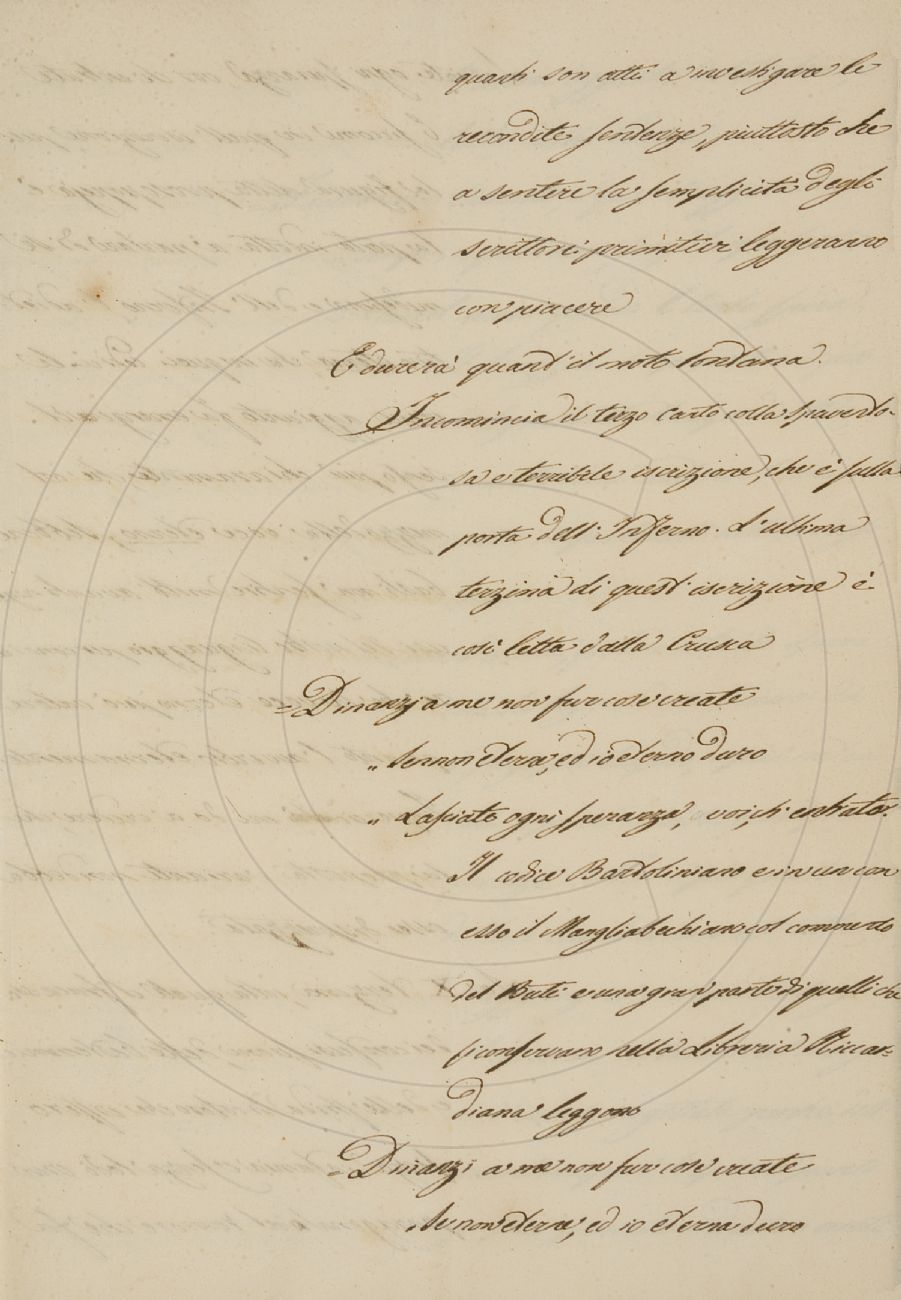 quanti son atti a investigare le
recondite sentenze, piuttosto che
a sentire la semplicità degli
scrittori primitivi leggeranno
con piacere
E durerà quant'il moto lontana.
Incomincia il terzo Canto colla spavento-
sa e terribile iscrizione, che è sulla
porta dell'Inferno. L'ultima
terzina di quest'iscrizione è
così letta dalla Crusca
= Dinanzi a me non fur cose create
„ Se non eterne, ed io eterno duro
„ Lasciate ogni speranza, voi, ch'entrate.
Il codice Bartoliniano e in un con
esso il Mangliabechiano col commento
del Buti e una gran parte di quelli che
si conservano nella Libreria Riccar-
diana leggono
= Dinanzi a me non fur cose create
„ Se non eterne, ed io eterna duro